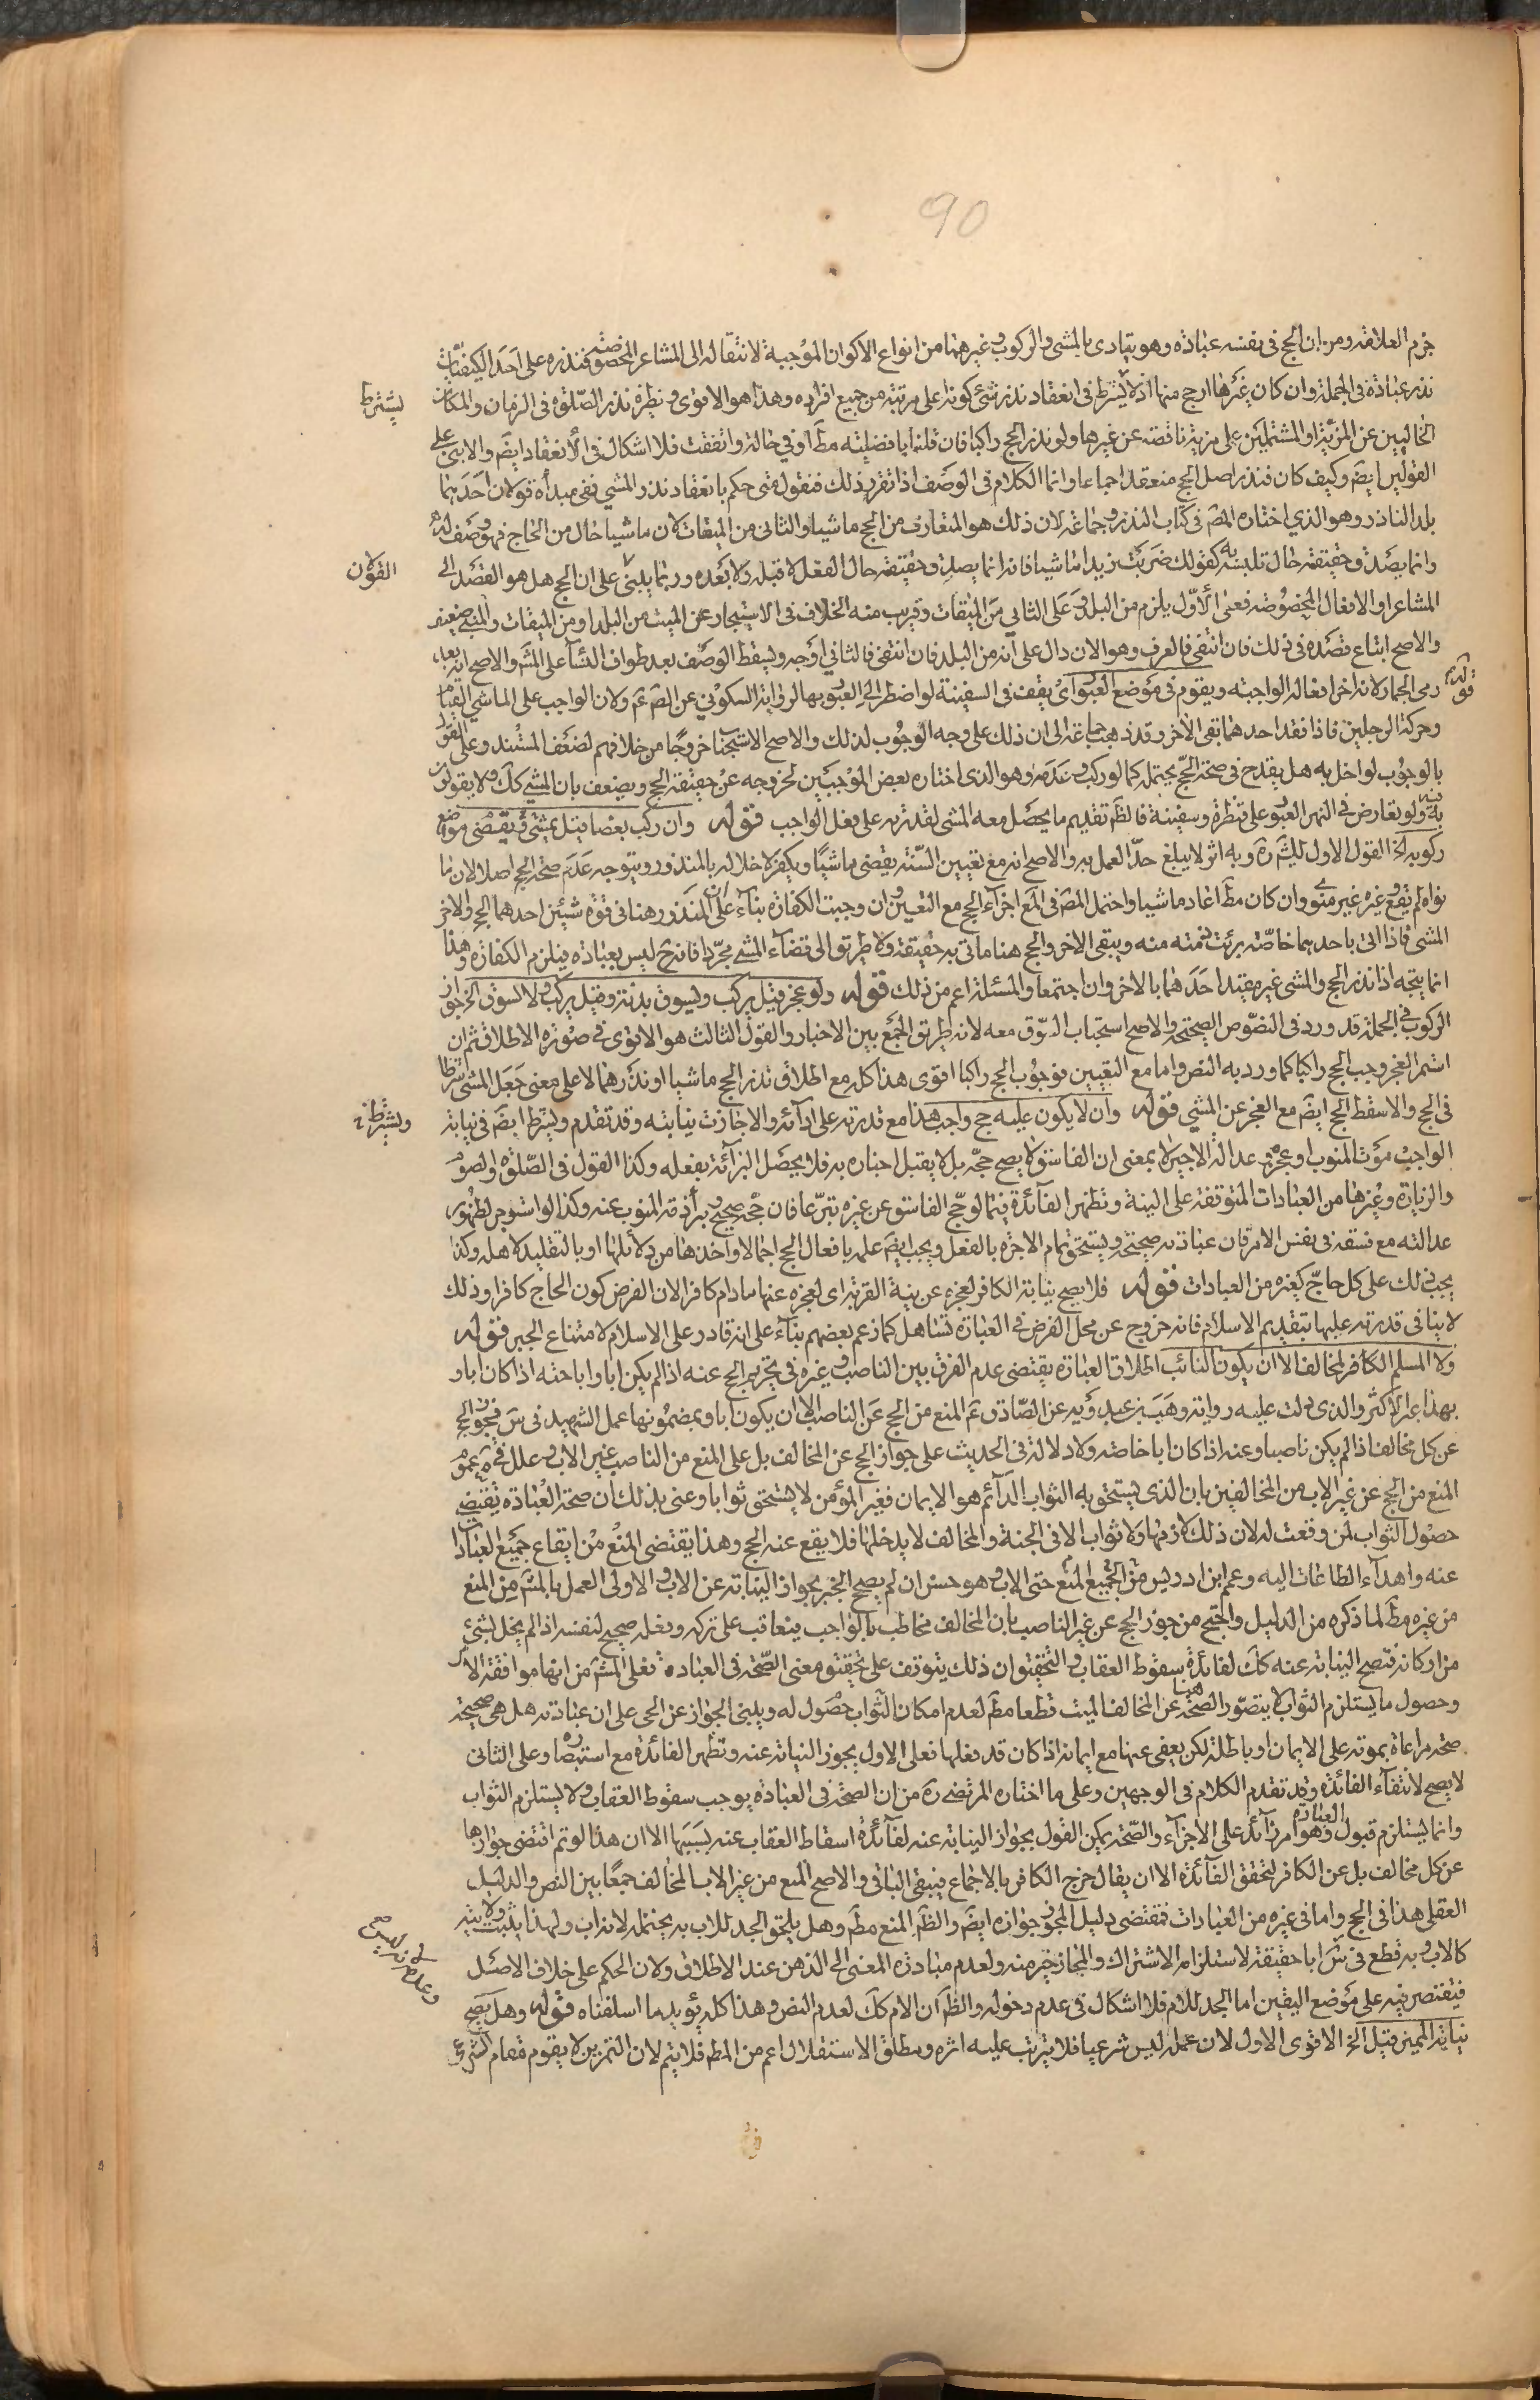 90
جزم العلامة ومن ان الحج فى نفسه عبادة وهو يتادى بالمشى والركوب وغيرهما من انواع الاكوان الموجبة لانتقاله الى المشاعر المخصوصة فنذره على احد الكيفيات
نذر عبادة فى الجملة وان كان غيرها ارجح منها اذ لا يشترط فى انعقاد نذر شئ كونه على مرتبة من جميع افراده وهذا هو الاقوى ونظيره نذر الصلوة فى الزمان والمكان
يشترط
الخاليين عن المزية او المشتملين على مزية ناقصة عن غيرها ولو نذر الحج راكبا فان قلنا بافضليته مط او فى حالة واتفقت فلا اشكال فى الانعقاد ايض والا بنى على
القولين ايض وكيف كان فنذر اصل الحج منعقد اجماعا وانما الكلام فى الوصف اذا تقرر ذلك فنقول متى حكم بانعقاد نذر المشى ففى مبدأه قولان احدهما
بلد الناذر وهو الذي اختاره المص فى كتاب النذر وجماعة لان ذلك هو المتعارف من الحج ماشيا والثانى من الميقات لان ماشيا حال من الحاج فهو وصف له
وانما يصدق حقيقة حال تلبسه به كقولك ضربت زيدا ماشيا فانه انما يصدق حقيقة حال الفعل لا قبله ولا بعده وربما يبنى على ان الحج هل هو القصد الى
القولان
المشاعر او الافعال المخصوصة فعلى الاول يلزم من البلد وعلى الثانى من الميقات وقريب منه الخلاف فى الاستيجار عن الميت من البلد او من الميقات والمبنى ضعيف
والاصح اتباع قصده فى ذلك فان انتفى فالعرف وهو الان دال على انه من البلد فان انتفى فالثانى اوجه ويسقط الوصف بعد طواف النساء على المش والاصح انه بعد
رمى الجمار لانه اخر افعاله الواجبة ويقوم فى موضع العبور اى يقف فى السفينة لو اضطر الى العبور بها لرواية السكونى عن الص ع ولان الواجب على الماشى القيام
قوله
وحركة الرجلين فاذا فقد احدهما بقى الاخر وقد ذهب جماعة الى ان ذلك على وجه الوجوب لذلك والاصح الاستحباب خروجا من خلافهم لضعف المستند وعلى القول
بالوجوب لو اخل به هل يقدح فى صحة الحج يحتمل كما لو ركب وعدمه وهو الذى اختاره بعض الموجبين لخروجه عن حقيقة الحج ويضعف بان المشى كك ولا يقولون
به فيه ولو تعارض فى النهر العبور على قنطرة وسفينة فالظ تقديم ما يحصل معه المشى لقدرته على فعل الواجب قوله وان ركب بعضا قيل يمشى ويقضى مواضع
ركوبه الخ القول الاول للشيخ ره وبه اثر لا يبلغ حد العمل به والاصح انه مع تعيين السنة يقضى ماشيا ويكفر لاخلاله بالمنذور ويتوجه عدم صحة الحج اصلا لان ما
نواه لم يقع وغيره غير منوى وان كان مط اعاد ماشيا واحتمل المص فى المع اجزاء الحج مع التعيين وان وجبت الكفارة بناء على ان المنذور هنا فى قوة شيئين احدهما الحج والاخر
المشى فاذا اتى باحدهما خاصة برئت ذمته منه ويبقى الاخر والحج هنا ماتى به حقيقة ولا طريق الى قضاء المشى مجردا فانه ح ليس بعبادة فيلزم الكفارة وهذا
انما يتجه اذا نذر الحج والمشى غير مقيد احدهما بالاخر وان اجتمعا والمسئلة اعم من ذلك قوله ولو عجز قيل يركب ويسوق بدنة وقيل يركب ولا يسوق الخ جواز
الركوب فى الجملة قد ورد فى النصوص الصحيحة والاصح استحباب السوق معه لانه طريق الجمع بين الاخبار والقول الثالث هو الاقوى فى صورة الاطلاق ثم ان
استمر العجز وجب الحج راكبا كما ورد به النص واما مع التعيين فوجوب الحج راكبا اقوى هذا كله مع اطلاق نذر الحج ماشيا او نذرهما لا على معنى جعل المشى شرطا
فى الحج والا سقط الحج ايض مع العجز عن المشى قوله وان لا يكون عليه حج واجب هذا مع قدرته على ادائه والا جازت نيابته وقد تقدم ويشترط ايض فى نيابة
ويشترط
الواجب موت المنوب او عجزه وعدالة الاجير لا بمعنى ان الفاسق لا يصح حجه بل لا يقبل اخباره به فلا يحصل البرائة بفعله وكذا القول فى الصلوة والصوم
والزيارة وغيرها من العبادات المتوقفة على النية وتظهر الفائدة فيما لو حج الفاسق عن غيره تبرعا فان حجه صحيح وبرأ ذمة المنوب عنه وكذا لو استوجر لظهور
عدالته مع فسقه فى نفس الامر فان عبادته صحيحة ويستحق تمام الاجرة بالفعل ويجب ايض علمه بافعال الحج اجمالا واخذها من دلائلها او بالتقليد لاهله وكذا
يجب ذلك على كل حاج كغيره من العبادات قوله فلا يصح نيابة الكافر لعجزه عن نية القربة اى لعجزه عنها مادام كافرا لان الفرض كون الحاج كافرا وذلك
لا ينافى قدرته عليها بتقديم الاسلام فانه خروج عن محل الفرض فى العبارة تساهل كما زعم بعضهم بناء على انه قادر على الاسلام لامتناع الجبر قوله
ولا المسلم الكافر لمخالف الا ان يكون النائب اطلاق العبارة يقتضى عدم الفرق بين الناصب وغيره فى تحريم الحج عنه اذا لم يكن ابا واباحته اذا كان ابا و
بهذا عبر الاكثر والذى دلت عليه رواية وهب بن عبد ربه عن الصادق ع المنع من الحج عن الناصب الا ان يكون ابا وبمضمونها عمل الشهيد فى س فجوز الحج
عن كل مخالف اذا لم يكن ناصبا وعنه اذا كان ابا خاصة ولا دلالة فى الحديث على جواز الحج عن المخالف بل على المنع من الناصب غير الاب وعلل فى عموم
المنع من الحج عن غير الاب من المخالفين بان الذى يستحق به الثواب الدائم هو الايمان فغير المؤمن لا يستحق ثوابا وعنى بذلك ان صحة العبادة تقتضى
حصول الثواب لمن وقعت له لان ذلك لازمها ولا ثواب الا فى الجنة والمخالف لا يدخلها فلا يقع عنه الحج وهذا يقتضى المنع من ايقاع جميع العبادات
عنه واهداء الطاعات اليه وعمم ابن ادريس من الجميع المنع حتى الاب وهو حسن ان لم يصح الخبر بجواز النيابة عن الاب والاولى العمل بالمش من المنع
من غيره مط لما ذكره من الدليل واحتج من جوز الحج عن غير الناصب بان المخالف مخاطب بالواجب فيعاقب على تركه وفعله صحيح لنفسه اذا لم يخل بشئ
من اركانه فتصح النيابة عنه كك لفائدة سقوط العقاب والتحقيق ان ذلك يتوقف على تحقيق معنى الصحة فى العبادة فعلى المش من انها موافقة الامر
وحصول ما يستلزم الثواب لا يتصور الصحة هنا عن المخالف الميت قطعا مط لعدم امكان الثواب حصول له ويبنى الجواز عن الحى على ان عبادته هل هى صحيحة
صحة مراعاة بموته على الايمان او باطلة لكن يعفى عنها مع ايمانه اذا كان قد فعلها فعلى الاول يجوز النيابة عنه وتظهر الفائدة مع استبصاره وعلى الثانى
لا يصح لانتفاء الفائدة وقد تقدم الكلام فى الوجهين وعلى ما اختاره المرتضى ره من ان الصحة فى العبادة يوجب سقوط العقاب ولا يستلزم الثواب
وانما يستلزم قبول العبادة وهو امر زائد على الاجزاء والصحة يمكن القول بجواز النيابة عنه لفائدة اسقاط العقاب عنه بسببها الا ان هذا لو تم اقتضى جوازها
عن كل مخالف بل عن الكافر لتحقق الفائدة الا ان يقال خرج الكافر بالاجماع فيبقى الباقى والاصح المنع من غير الاب المخالف جمعا بين النص والدليل
العقلى هذا فى الحج واما فى غيره من العبادات فمقتضى دليل المجوز جوازه ايض والظ المنع مط وهل يلحق الجد للاب به يحتمله لانه اب ولهذا يثبت ولايته
كالاب وبه قطع فى س ابا حقيقة لاستلزام الاشتراك والمجاز خير منه ولعدم مبادرة المعنى الى الذهن عند الاطلاق ولان الحكم على خلاف الاصل
فيقتصر فيه على موضع اليقين اما الجد للام فلا اشكال فى عدم دخوله والظ ان الام كك لعدم النص وهذا كله يؤيد ما اسلفناه قوله وهل يصح
نيابة المميز قيل الخ الاقوى الاول لان عمله ليس شرعيا فلا يترتب عليه اثره ومطلق الاستقلال اعم من المط فلا يتم لان التمرين لا يقوم مقام الشرعى